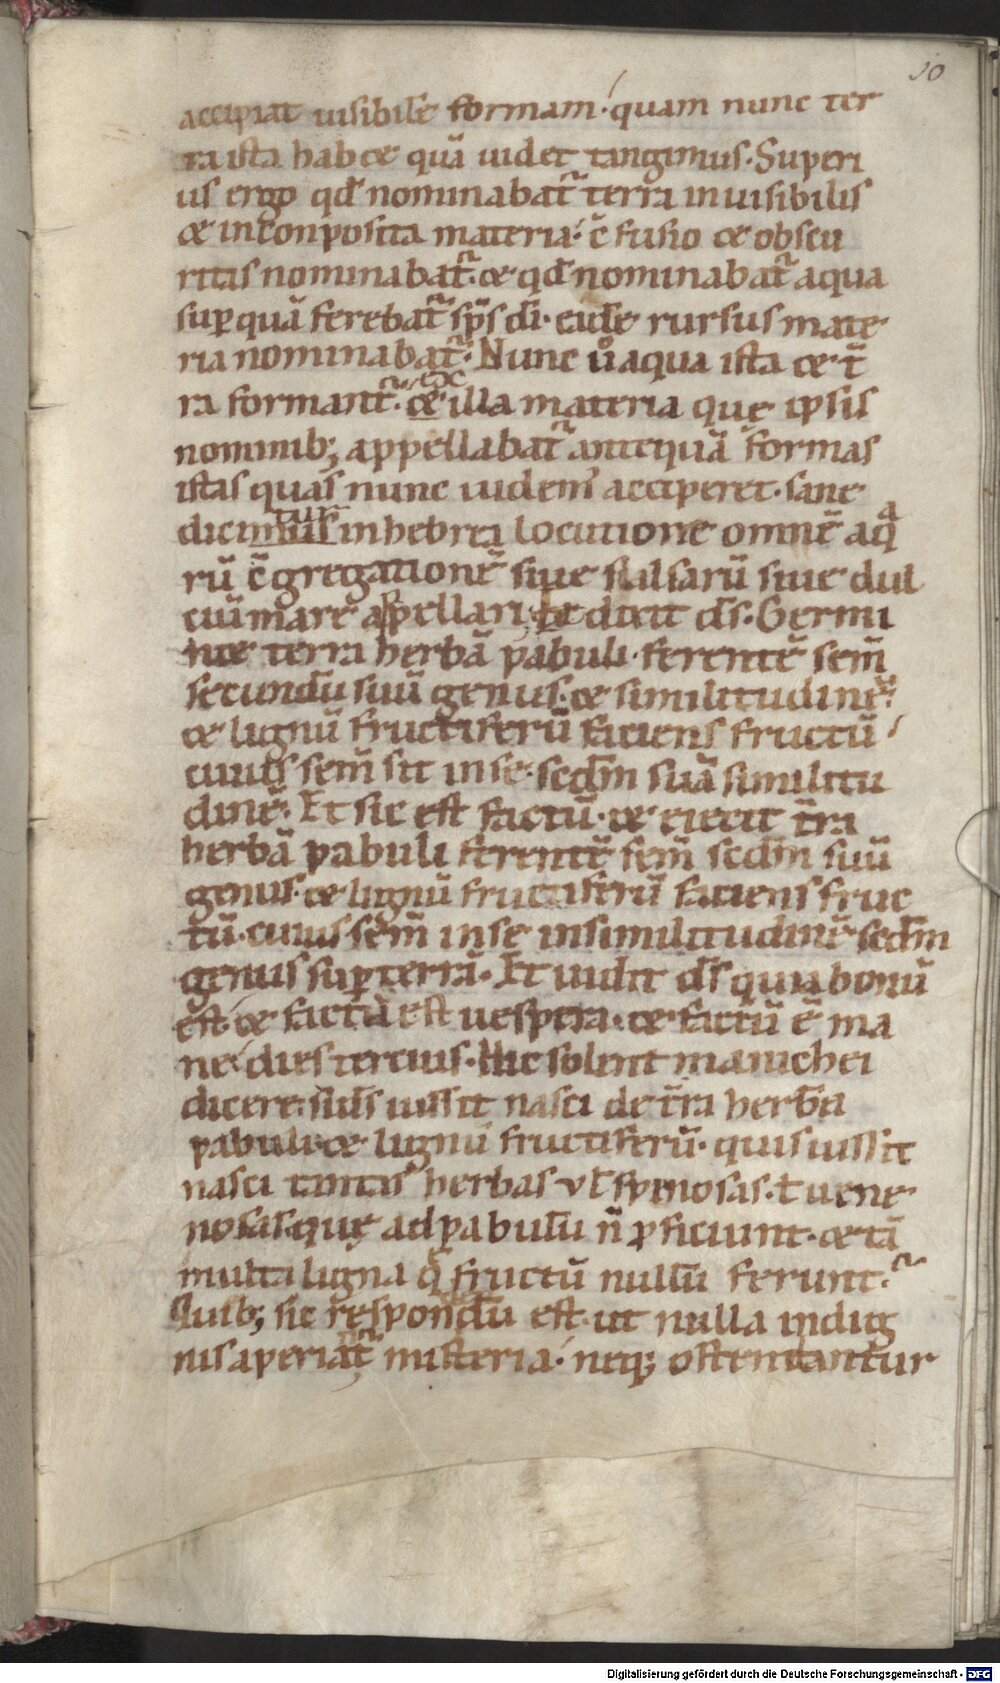 10
accipiat uisibilē formam. quam nunc ter
ra ista habet quā uidet tangimus. Superi
us ergo qđ nominabat᷑ terra inuisibilis
et inconposita materia. c̄fusio et obscu
ritas nominabat᷑. et qđ nominabat᷑ aqua
suꝑ quā ferebat᷑ sp̄s dī. eadē rursus mate
ria nominabat᷑. Nunc uͦ aqua ista et t̄
ra formant᷑. illa materia que ipsis
nominib; appellabat᷑ antequā formas
istas quas nunc uidemꝰ acciperet. sane
dicimus tur in hebrea locutione omnē aqͣ
rū c̄gregationē siue salsarū siue dul
ciū mare appellari. dicit dn̄s. Germi
net terra herbā pabuli. ferentē sem̄
secundū suū genus. et similitudinē.
et lignū fructiferū faciens fructū
cuius sem̄ sit in se. scđm suā similitu
dinē. Et sic est factū. et eiecit t̄ra
herbā pabuli ferentē sem̄ scđm suū
genus. et lignū fructiferū faciens fruc
tū. cuius sem̄ in se in similitudinē scđm
genus suꝑ terrā. Et uidit dš quia bonū
est. et facta est uespera. et factū ē ma
ne. dies tercius. Hic solent manichei
dicere. si dš iussit nasci de t̄ra herbā
pabuli. et lignū fructiferū. quis iussit
nasci tantas herbas vł spinosas. ł uene
nosas. quę ad pabulū n̄ ꝓficiunt. et tā
multa ligna q̄ fructū nullū ferunt.
Quib; sic respondendū est. ut nulla indig
nis aperiant᷑ misteria. neq; ostentantur
Digitalisierung gefördert durch die Deutsche Forschungsgemeinschaft - DFG